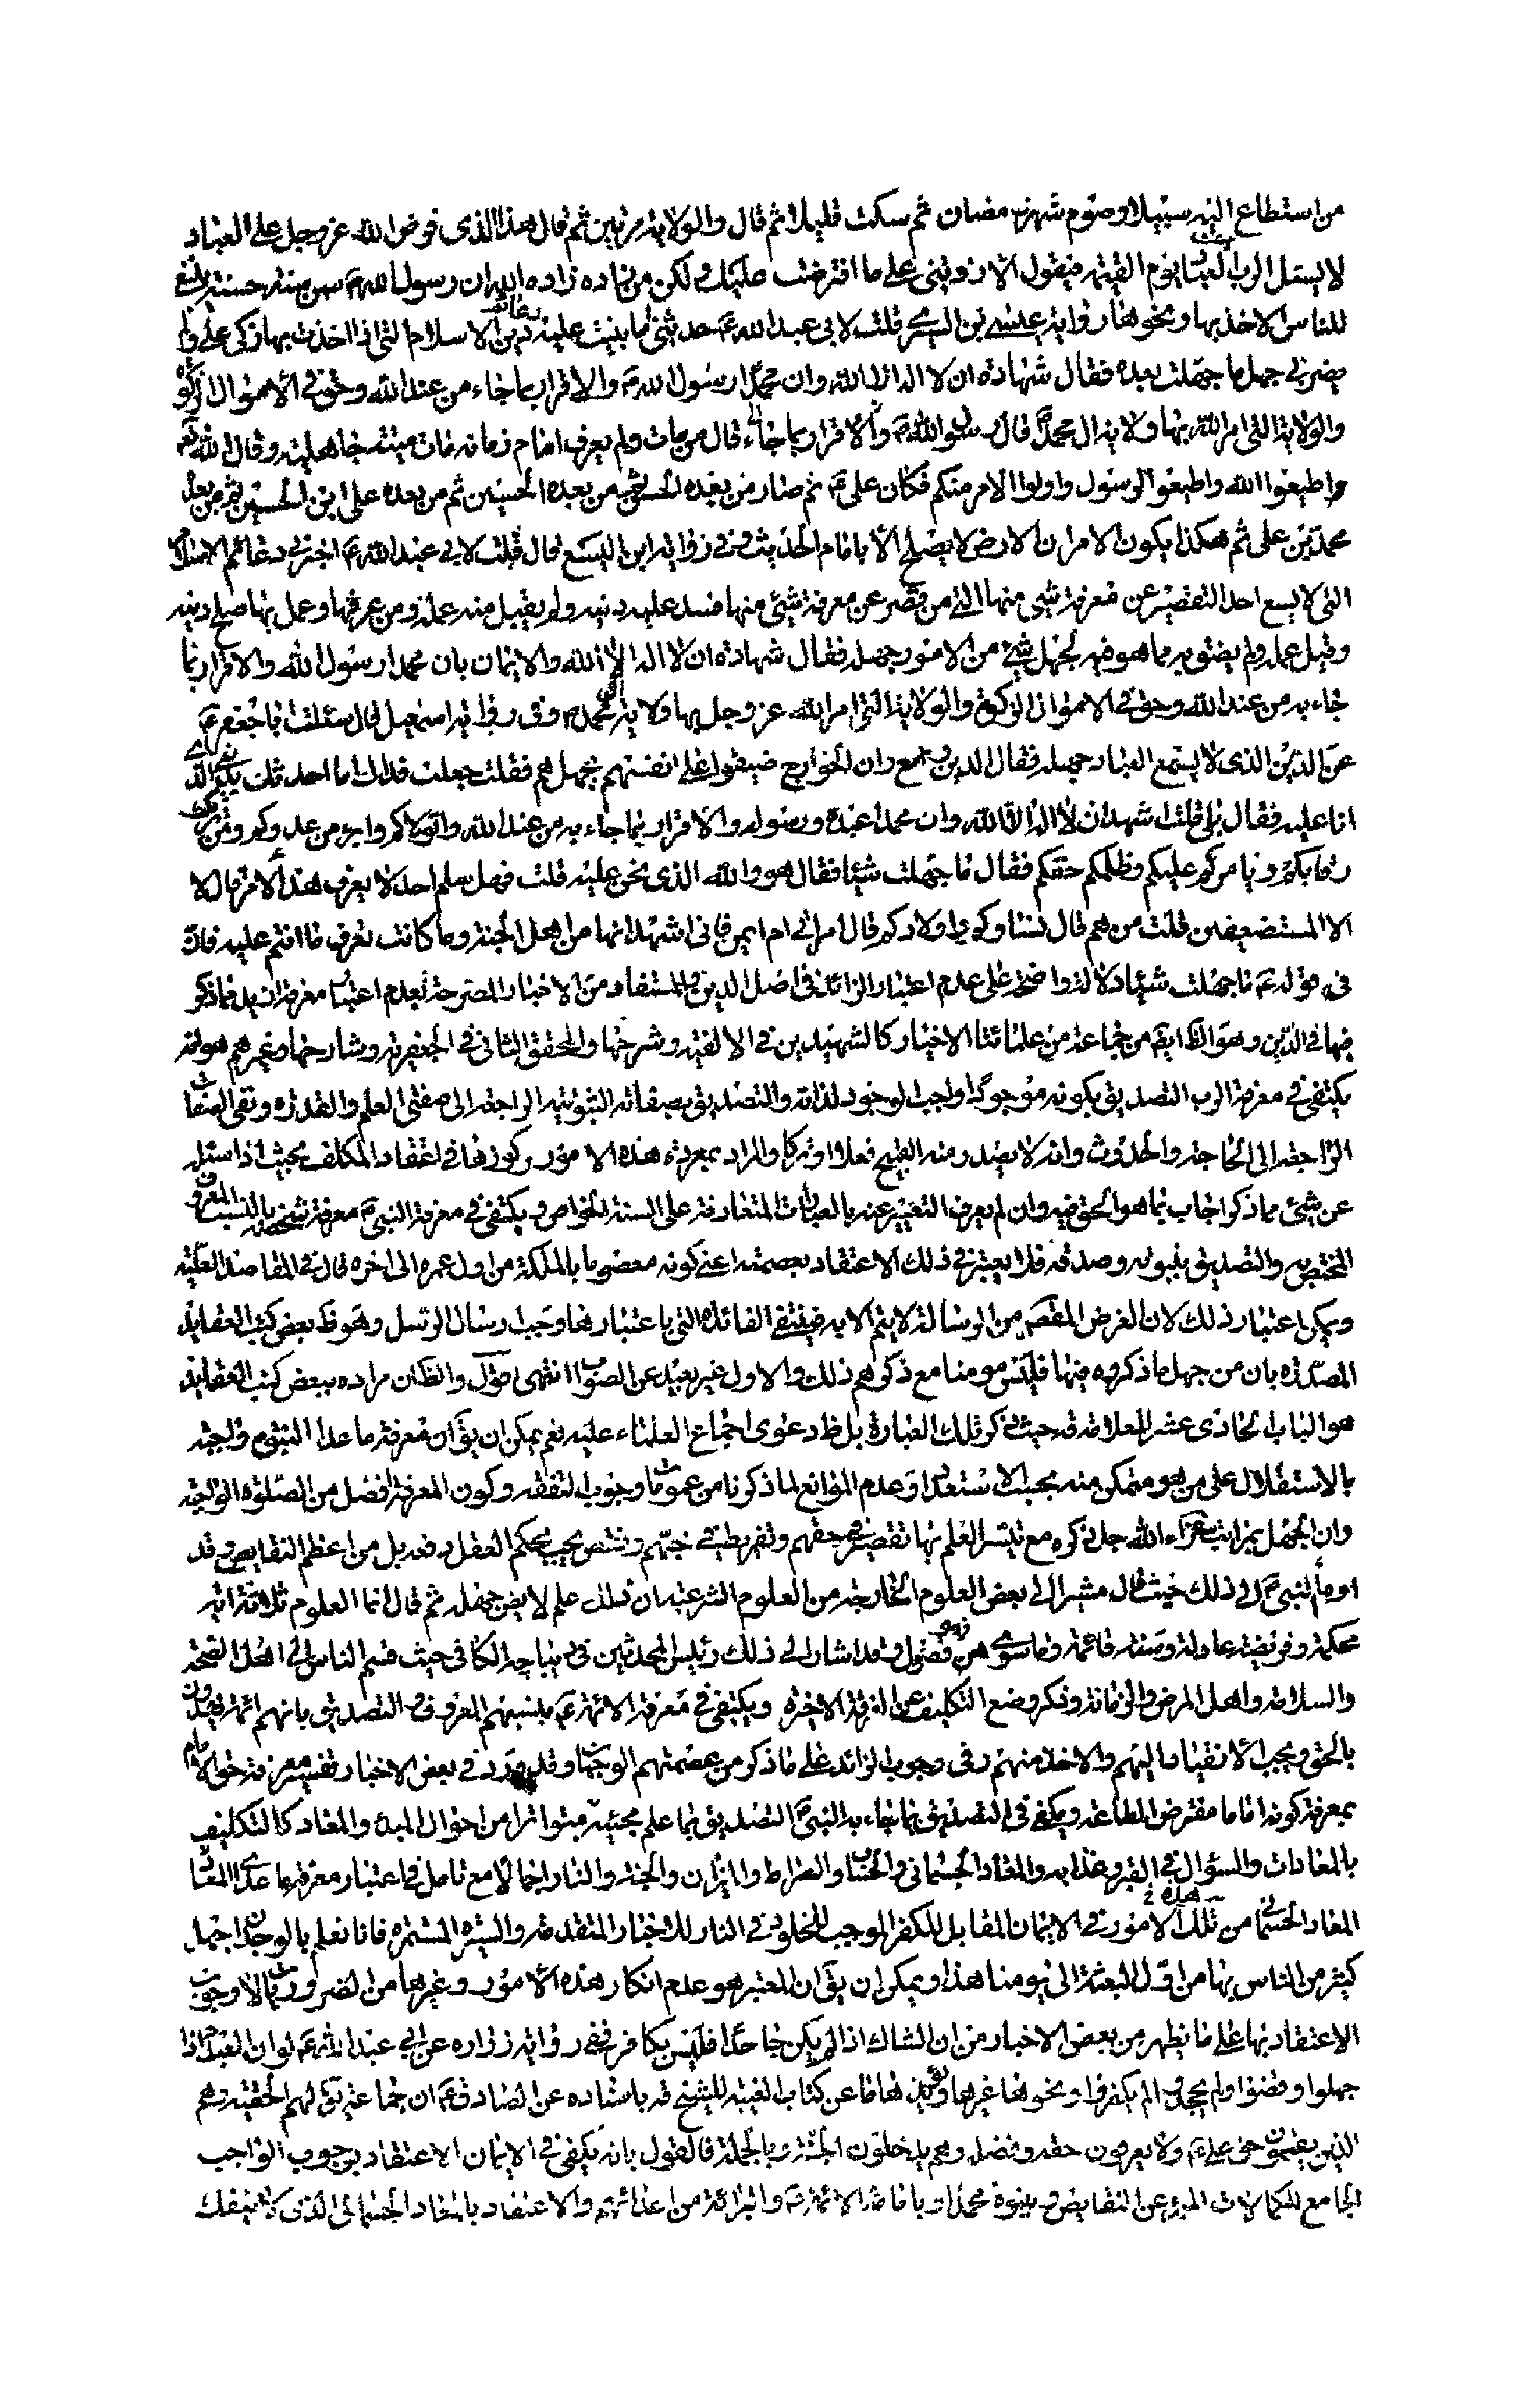 من استطاع اليه سبيلا وصوم شهر رمضان ثم سكت قليلا ثم قال والولاية مرتين ثم قال هذا الذى فرض الله عز وجل على العباد
لا يسئل الرب العباد يوم القيمة فيقول الا زدتنى على ما افترضت عليك ولكن من زاده زاده الله ان رسول الله ص سن سنة حسنة ينبغى
للناس الاخذ بها ونحوها رواية عيسى بن السرى قلت لابى عبد الله ع حدثنى عما بنيت عليه دعائم الاسلام التى اذا اخذت بها زكى عملى ولم
يضرنى جهل ما جهلت بعده فقال شهادة ان لا اله الا الله وان محمدا رسول الله ص والاقرار بما جاء من عند الله وحق فى الاموال الزكوة
والولاية التى امر الله بها ولاية ال محمد قال رسول الله ص قال من مات ولم يعرف امام زمانه مات ميتة جاهلية وقال الله تع
واطيعوا الله واطيعوا الرسول واولوا الامر منكم فكان على ع ثم صار من بعده الحسن ثم من بعده الحسين ثم من بعده على ابن الحسين ثم من بعده
محمد بن على ثم هكذا يكون الامر ان الارض لا يصلح الا بامام الحديث وفى رواية ابن اليسع قال قلت لابى عبد الله ع اخبرنى دعائم الاسلام
التى لا يسع احد التقصير عن معرفة شئ منها التى من قصر عن معرفة شئ منها فسد عليه دينه ولم يقبل منه عمله ومن عرفها وعمل بها صلح دينه
وقبل عمله ولم يضق به مما هو فيه لجهل شئ من الامور جهله فقال شهادة ان لا اله الا الله والايمان بان محمدا رسول الله والاقرار بما
جاء به من عند الله وحق فى الاموال الزكوة والولاية التى امر الله عز وجل بها ولاية ال محمد ص وفى رواية اسمعيل قال سئلت ابا جعفر ع
عن الدين الذى لا يسع العباد جهله فقال الدين واسع وان الخوارج ضيقوا على انفسهم بجهلهم فقلت جعلت فداك اما احدثك بدينى الذى
انا عليه فقال بلى قلت اشهد ان لا اله الا الله وان محمدا عبده ورسوله والاقرار بما جاء به من عند الله واتولاكم وابرء من عدوكم ومن ركب
رقابكم وتامر عليكم وظلمكم حقكم فقال ما جهلت شيئا فقال هو والله الذى نحن عليه قلت فهل سلم احد لا يعرف هذا الامر قال لا
الا المستضعفين قلت من هم قال نساؤكم واولادكم قال ارايت ام ايمن فانى اشهد انها من اهل الجنة وما كانت تعرف ما انتم عليه فان
فى قوله ع ما جهلت شيئا دلالة واضحة على عدم اعتبار الزائد فى اصل الدين والمستفاد من الاخبار المصرحة بعدم اعتبار معرفة ازيد مما ذكر
فيها فى الدين وهو الظ ايضا من جماعة من علمائنا الاخيار كالشهيدين فى الالفية وشرحها والمحقق الثانى فى الجعفرية وشارحها وغيرهم هو انه
يكتفى فى معرفة الرب التصديق بكونه موجودا واجب الوجود لذاته والتصديق بصفاته الثبوتية الراجعة الى صفتى العلم والقدرة ونفى الصفات
الراجعة الى الحاجة والحدوث وانه لا يصدر منه القبيح فعلا او تركا والمراد بمعرفة هذه الامور ركوزها فى اعتقاد المكلف بحيث اذا سئل
عن شئ مما ذكر اجاب بما هو الحق فيه وان لم يعرف التعبير عنه بالعبارات المتعارفة على السنة الخواص ويكتفى فى معرفة النبى ص معرفة شخصه بالنسب المعروف
المختص به والتصديق بنبوته وصدقه فلا يعتبر فى ذلك الاعتقاد بعصمته اعنى كونه معصوما بالملكة من اول عمره الى اخره قال فى المقاصد العلية
ويمكن اعتبار ذلك لان الغرض المقصود من الرسالة لا يتم الا به فينتفى الفائدة التى باعتبارها وجب ارسال الرسل وهو ظ بعض كتب العقايد
المصدرة بان من جهل ما ذكروه فيها فليس مومنا مع ذكرهم ذلك والاول غير بعيد عن الصواب انتهى اقول والظ ان مراده ببعض كتب العقايد
هو الباب الحادى عشر للعلامة قه حيث ذكر تلك العبارة بل ظ دعوى اجماع العلماء عليه نعم يمكن ان يق ان معرفة ما عدا النبوة واجبة
بالاستقلال على من هو متمكن منه بحسب الاستعداد وعدم الموانع لما ذكرنا من عمومات وجوب التفقه وكون المعرفة افضل من الصلوة الواجبة
وان الجهل بمراتب سفراء الله جل ذكره مع تيسر العلم بها تقصير فى حقهم وتفريط فى حبهم ونقص يجب بحكم العقل دفعه بل من اعظم النقايص وقد
اومأ النبى ص الى ذلك حيث قال مشيرا الى بعض العلوم الخارجة من العلوم الشرعية ان ذلك علم لا يضر جهله ثم قال انما العلوم ثلاثة اية
محكمة وفريضة عادلة وسنة قائمة وما سواهن فهو فضل وقد اشار الى ذلك رئيس المحدثين فى ديباجة الكافى حيث قسم الناس الى اهل الصحة
والسلامة واهل المرض والزمانة وذكر وضع التكليف عن الفرقة الاخيرة ويكتفى فى معرفة الائمة ع بنسبهم المعروف والتصديق بانهم ائمة يهدون
بالحق ويجب الانقياد اليهم والاخذ منهم وفى وجوب الزائد على ما ذكر من عصمتهم الوجهان وقد ورد فى بعض الاخبار تفسير معرفة حق الامام
بمعرفة كونه اماما مفترض الطاعة ويكفى فى التصديق بما جاء به النبى ص التصديق بما علم مجيئه به متواترا من احوال المبدء والمعاد كالتكليف
بالعبادات والسؤال فى القبر وعذابه والمعاد الجسمانى والحساب والصراط والميزان والجنة والنار اجمالا مع تامل فى اعتبار معرفة ما عدا المعاد
المعاد الجسمانى من تلك الامور فى الايمان المقابل للكفر الموجب للخلود فى النار للاخبار المتقدمة والسيرة المستمرة فانا نعلم بالوجدان جهل
كثير من الناس بها من اول البعثة الى يومنا هذا ويمكن ان يق ان المعتبر هو عدم انكار هذه الامور وغيرها من الضروريات لا وجوب
الاعتقاد بها على ما يظهر من بعض الاخبار من ان الشاك اذا لم يكن جاحدا فليس بكافر ففى رواية زرارة عن ابى عبد الله ع لو ان العباد اذا
جهلوا وقفوا ولم يجحدوا لم يكفروا ونحوها غيرها ويؤيدها ما عن كتاب الغيبة للشيخ قه باسناده عن الصادق ع ان جماعة يق لهم الحقية وهم
الذين يقسمون بحق على ع ولا يعرفون حقه وفضله وهم يدخلون الجنة وبالجملة فالقول بانه يكفى فى الايمان الاعتقاد بوجوب الواجب
الجامع للكمالات المنزه عن النقايص وبنبوة محمد ص وبامامة الائمة ع والبرائة من اعدائهم والاعتقاد بالمعاد الجسمانى الذى لا ينفك